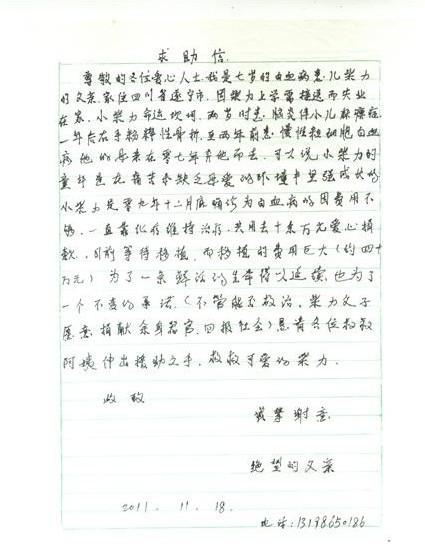 求助信
尊敬的各位爱心人士.我是七岁的白血病患儿柴力
的父亲.家住四川省遂宁市.因柴力上学需接送而失业
在家.小柴力命运坎坷.两岁时患脑炎伴小儿麻痹症.
一年后右手粉碎性骨折.至两年前患慢性粒细胞白血
病.他的母亲在零七年弃他而去.可以说小柴力的
童年是在痛苦本缺乏母爱的环境中坚强成长的
小柴力是零九年十二月底确诊为白血病的因费用不
够.一直靠化疗维持治疗.共用去十余万元爱心捐
款.目前等待移植.而移植的费用巨大(约四十
万元)为了一条鲜活的生命得以延续.也为了
一个不变的承诺.(不管能否救治.柴力父子
愿意捐献全身器官.回报社会)恳请各位叔叔
阿姨伸出援助之手.救救可爱的柴力.
此致
诚挚谢意
绝望的父亲
2011. 11. 18.
电话:13198650186